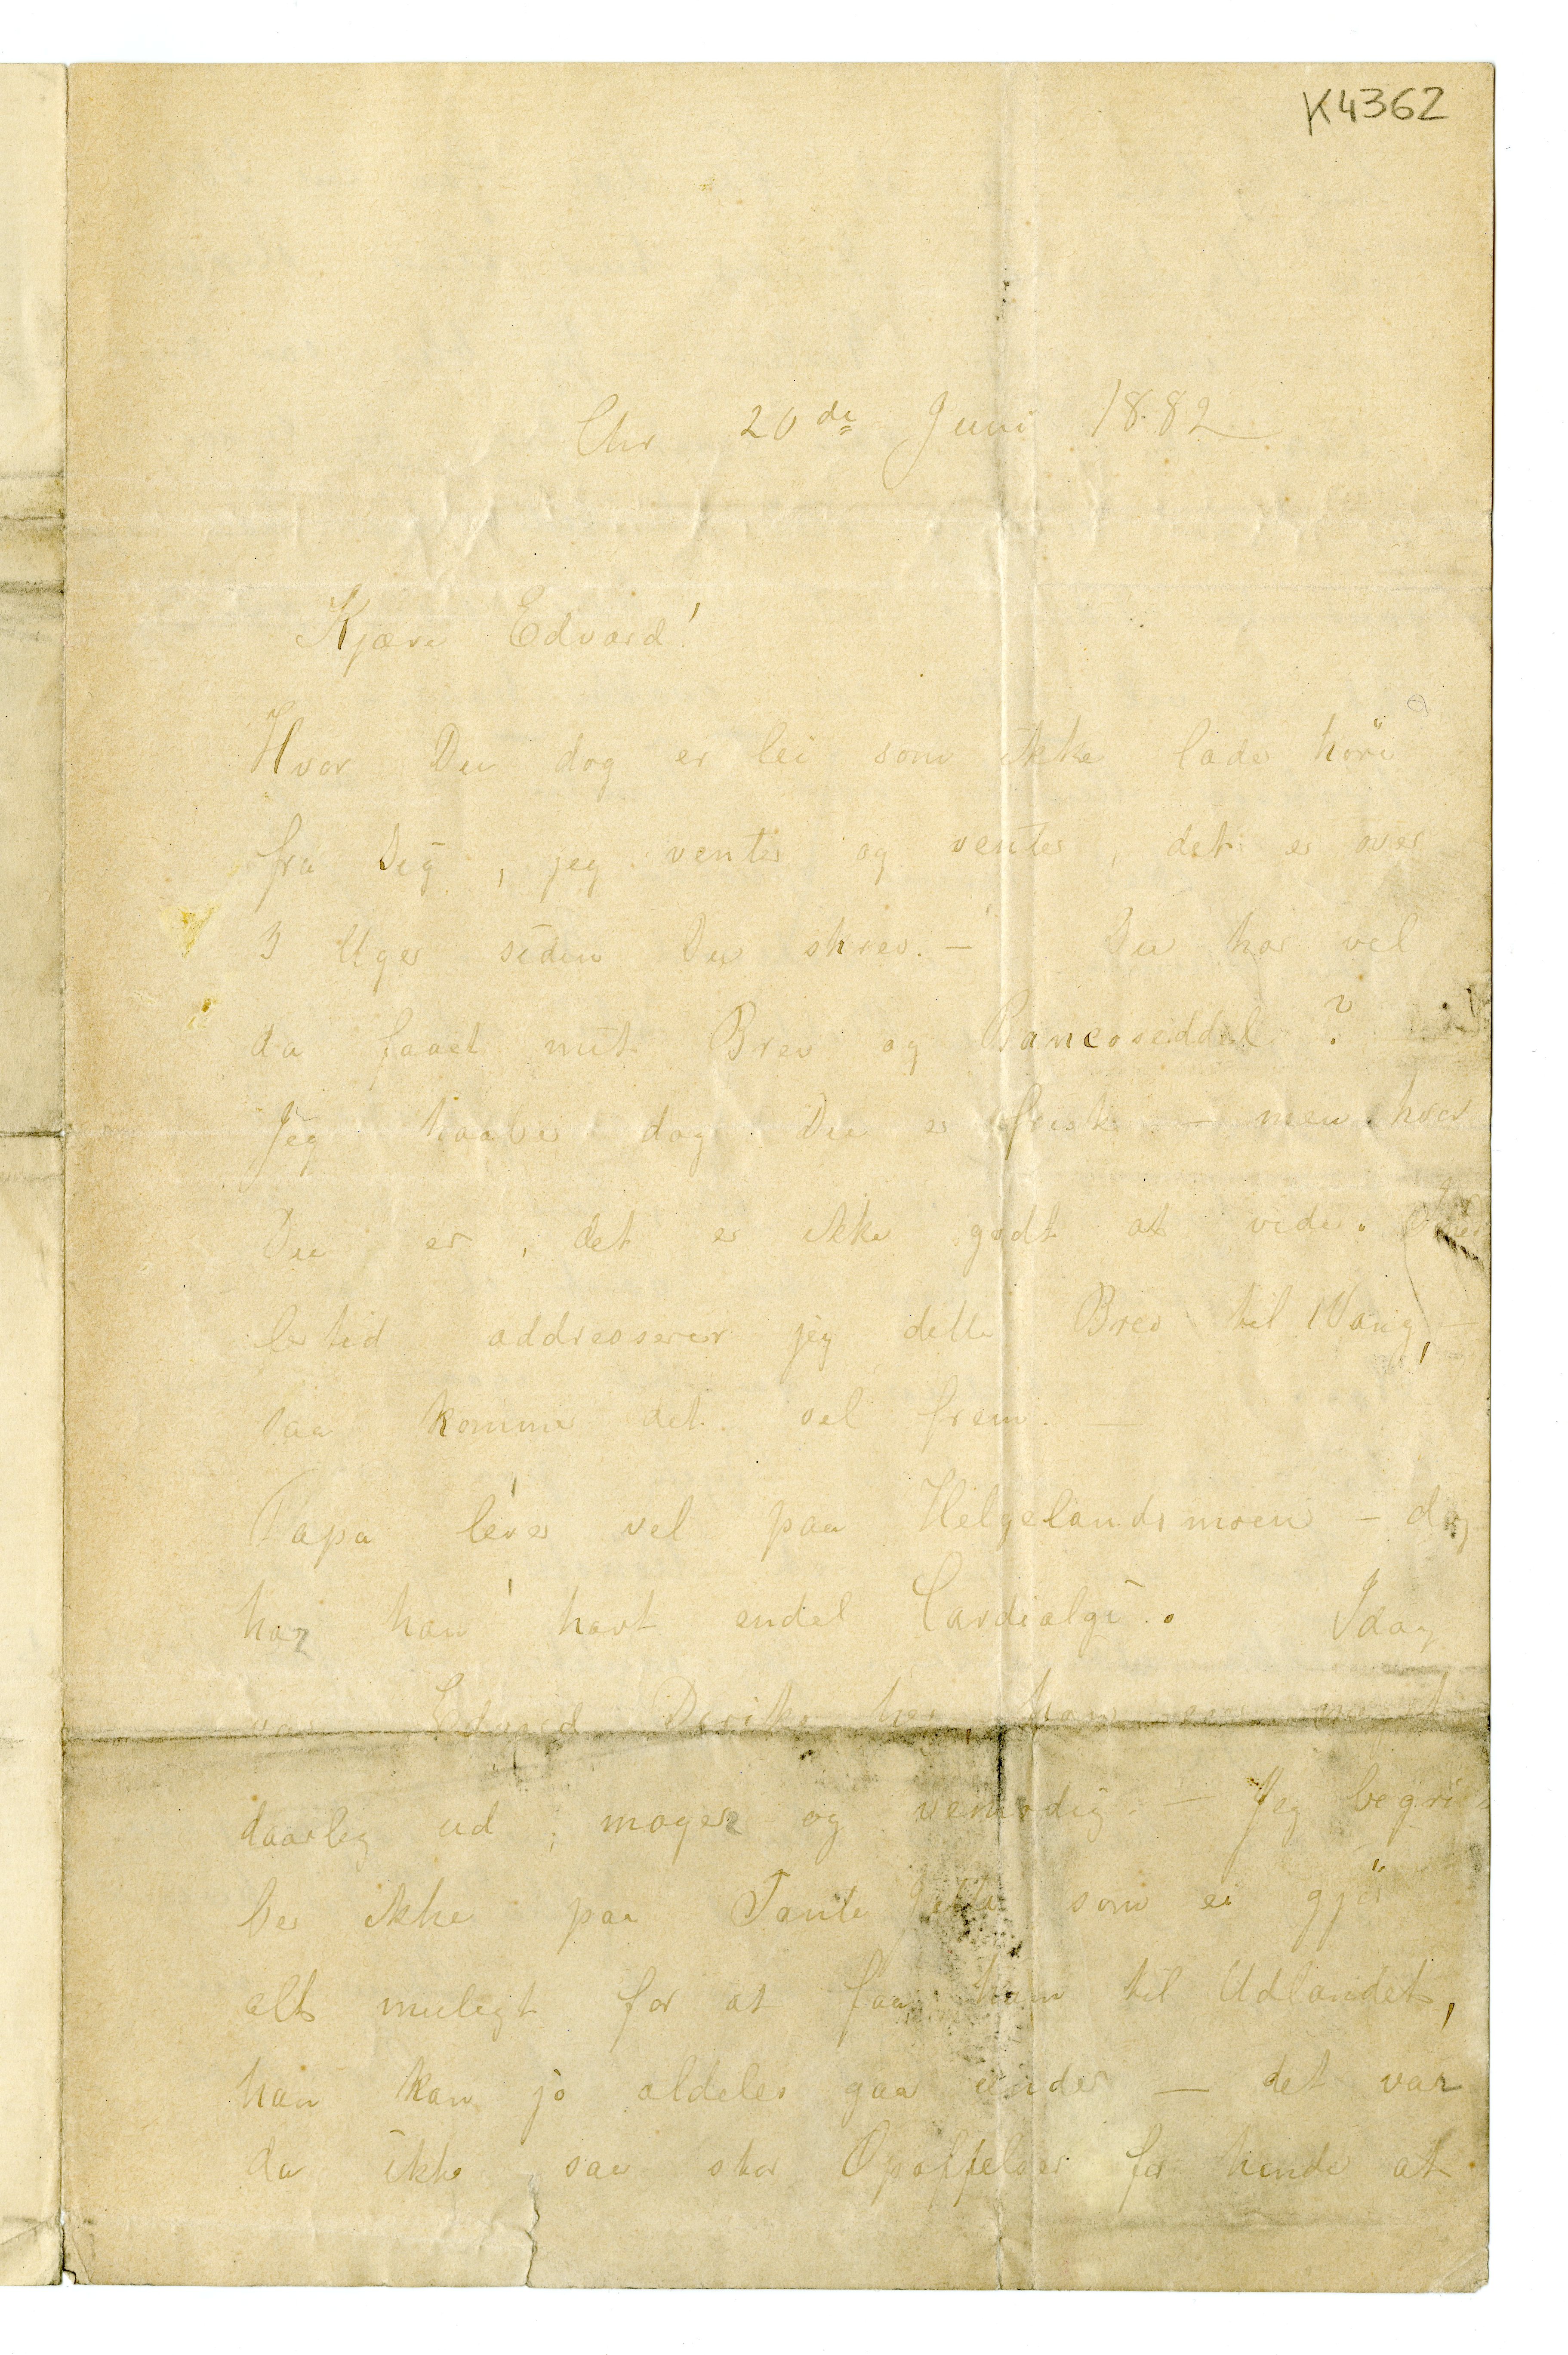 K4362
Chr 20de Juni 1882
Kjære Edvard!
Hvor Du dog er lei som ikke lader höre
fra Dig, jeg venter og venter, det er over
3 Uger siden Du skrev. – Du har vel
da faaet mit Brev og Bancoseddel?
Jeg haaber dog Du er frisk – men hvor
Du er, det er ikke godt at vide.
lertid addresserer jeg dette Brev til Vang, –
saa kommer det vel frem. –
Papa lever vel paa Helgelandsmoen – dog
har han havt endel Cardialgi. Idag
var Edvard Diriks her, han
daarlig ud, mager og vemodig – Jeg begri
ber ikke paa Tante som ei gjör
alt muligt for at faa ham til Udlandet,
han kan jo aldeles gaa under – det var
da ikke saa stor Opoffelser for hende at